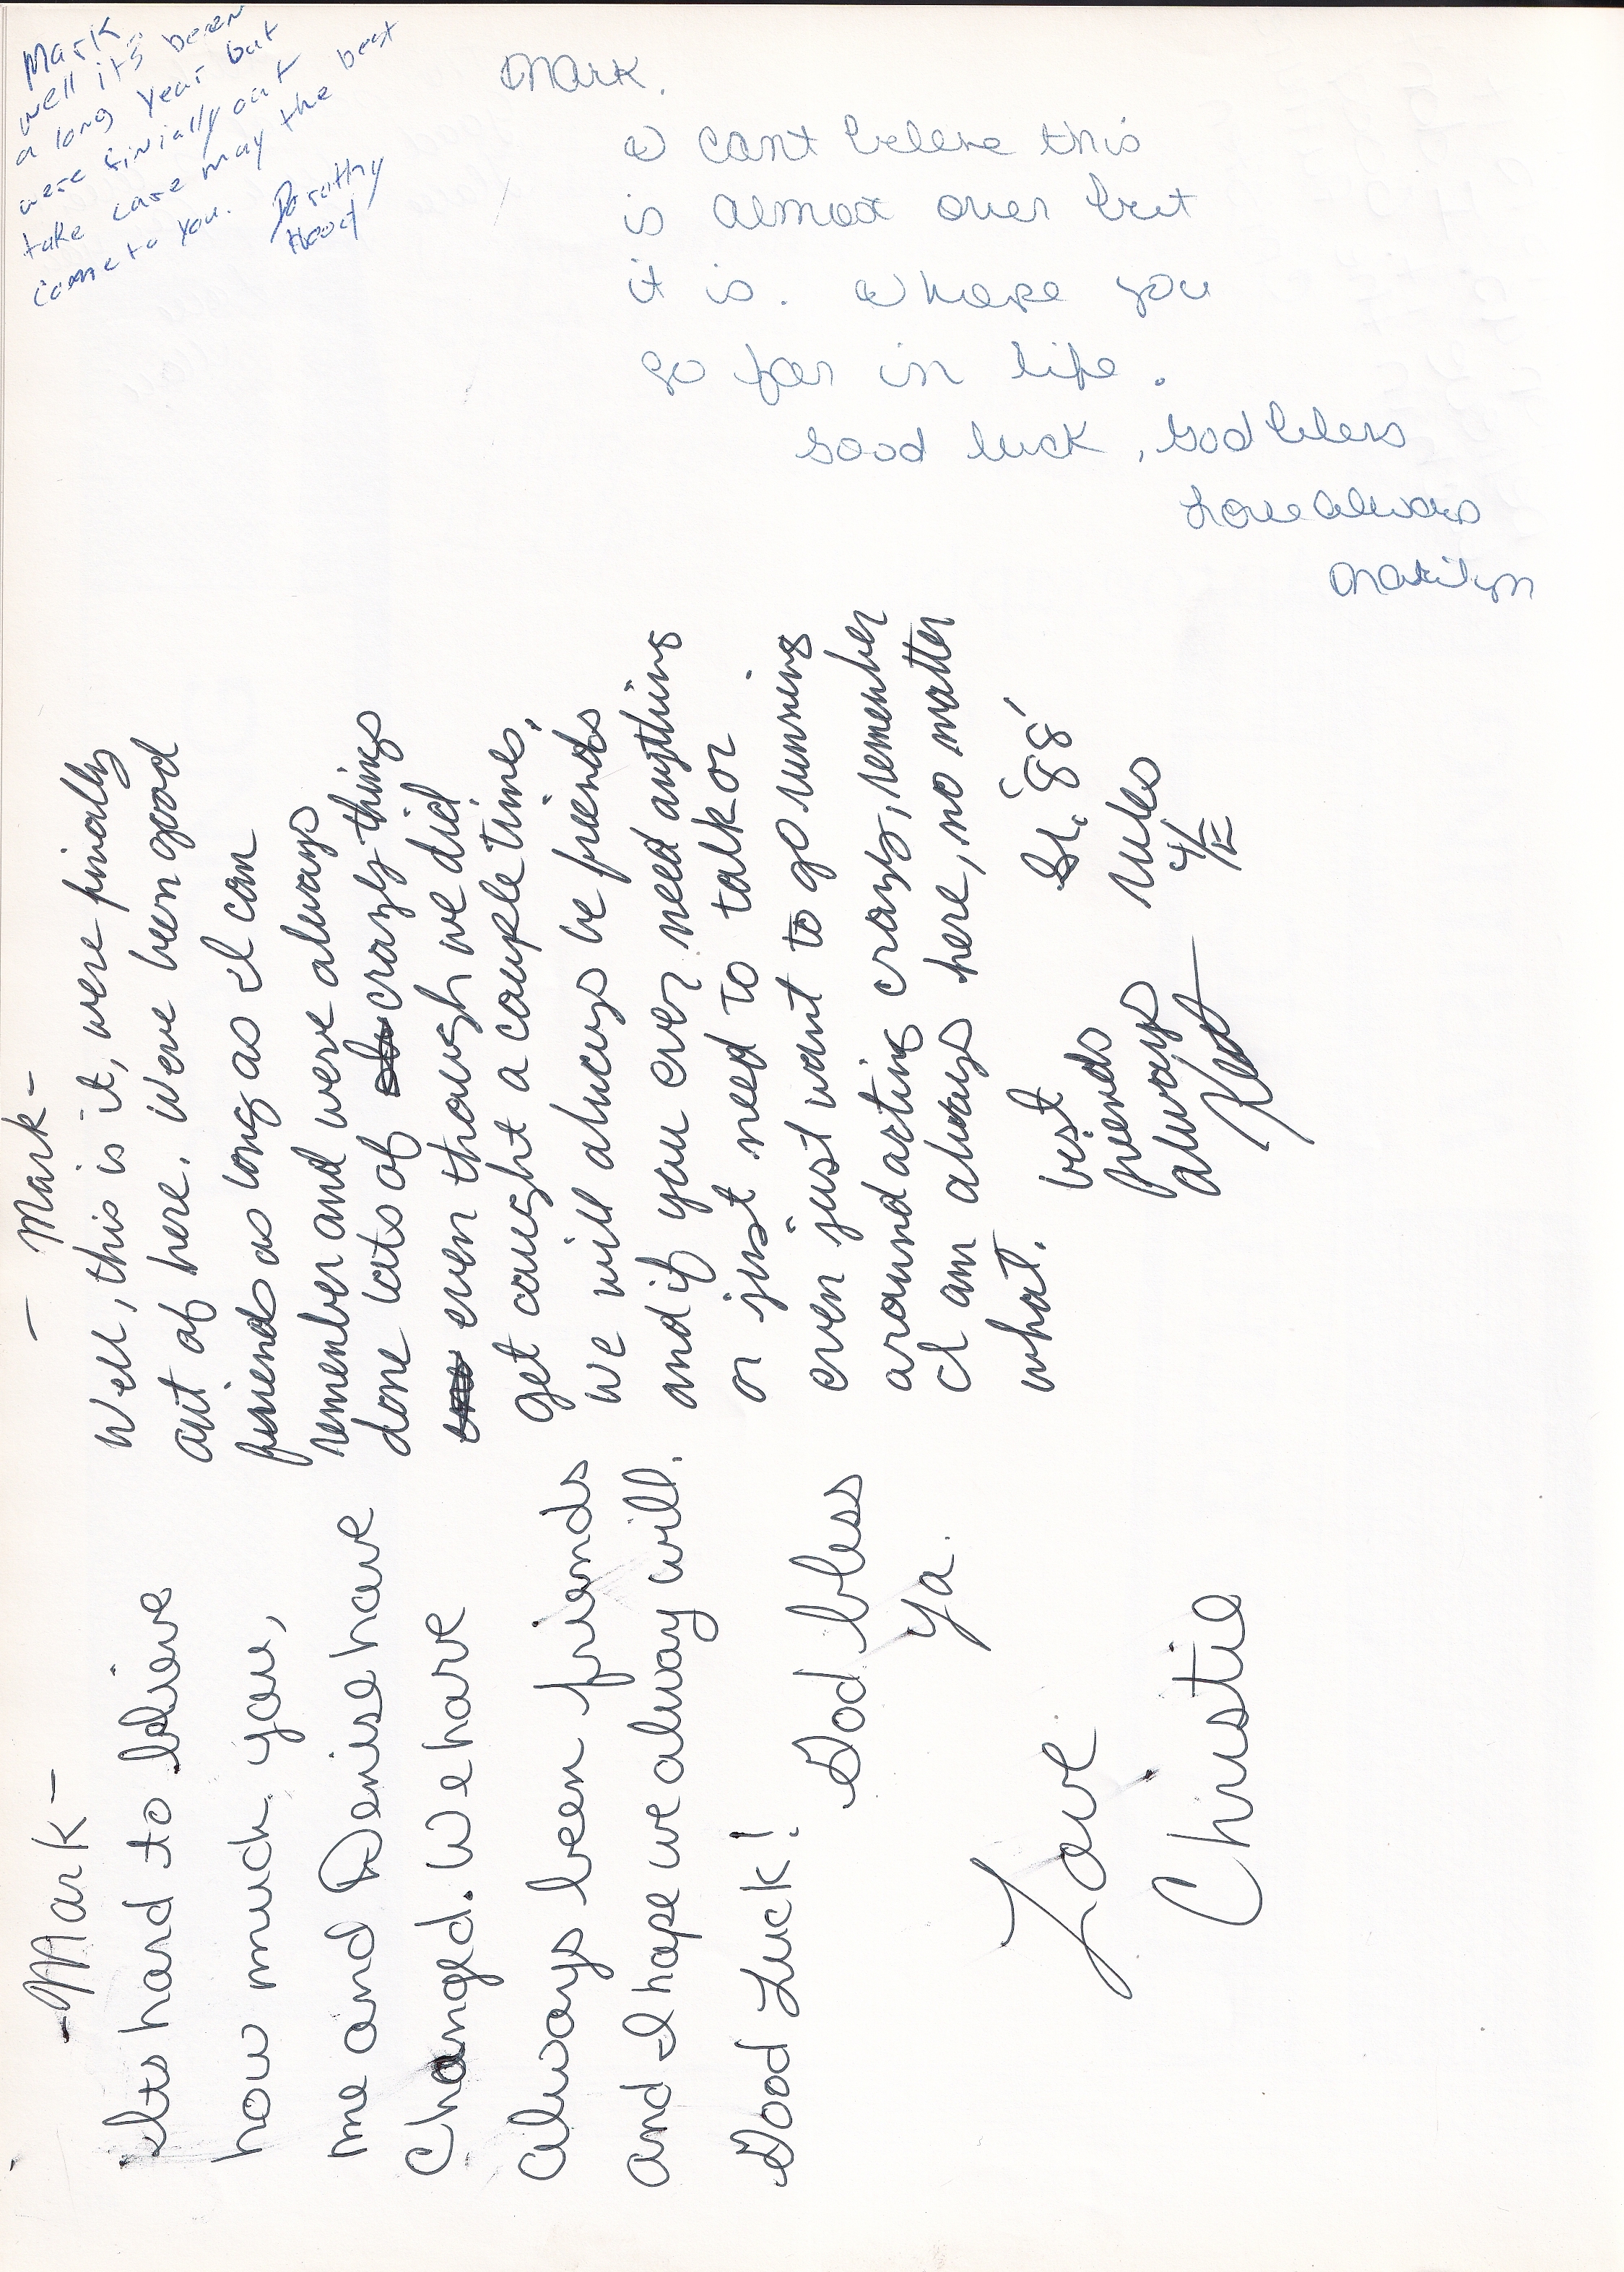 Mark
well it's been
a long year but
were finially out
take care may the best
come to you.
Dorothy
Hood
Mark.
I cant beleve this
is almost over but
it is. I hope you
go far in life.
Good luck, God bless
Love always
Marilyn
- Mark -
Well, this is it, were finally
out of here. We've been good
friends as long as I can
remember and we've always
done lots of crazy things
even though we did
get caught a couple times.
We will always be friends
and if you ever need anything
or just need to talk or
even just want to go running
around acting crazy, remember
I am always here, no matter
what.
best
friends
always
Sr. '88'
rules
-Mark-
Its hard to blieve
how much you,
me and Denise have
Changed. We have
always been friends
and I hope we alway will.
Good Luck!
God bless
ya.
Love
Christie